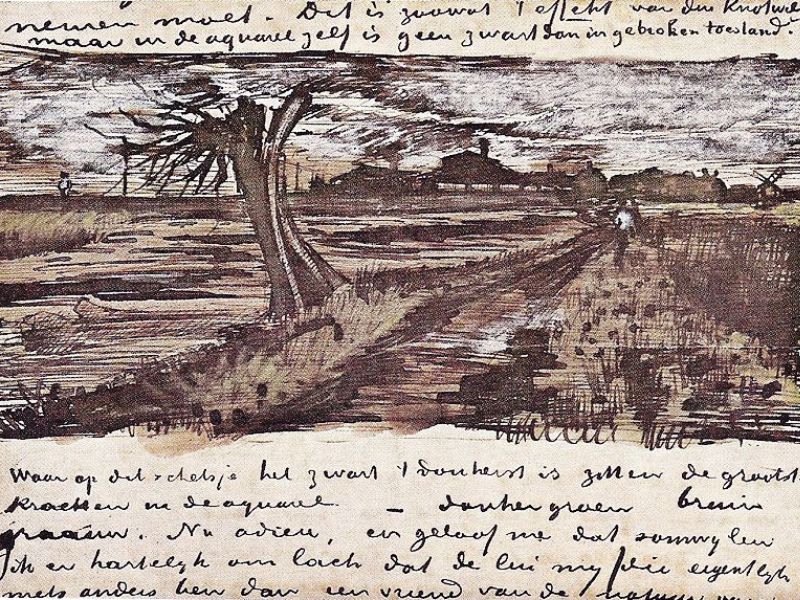 nemen moet. Dit is zoowat 't effekt van den Knotwil
maar in de aquarel zelf is geen zwart dan in gebroken toestand.
Waar op dit schetsje het zwart 't donkerst is zitten de grootst
krachten in de aquarel – donkergroen bruin
graauw. Nu adieu, en geloof me dat somwylen
ik er hartelyk om lach dat de lui my die eigentlyk
niets anders ben dan een vriend van de natuur